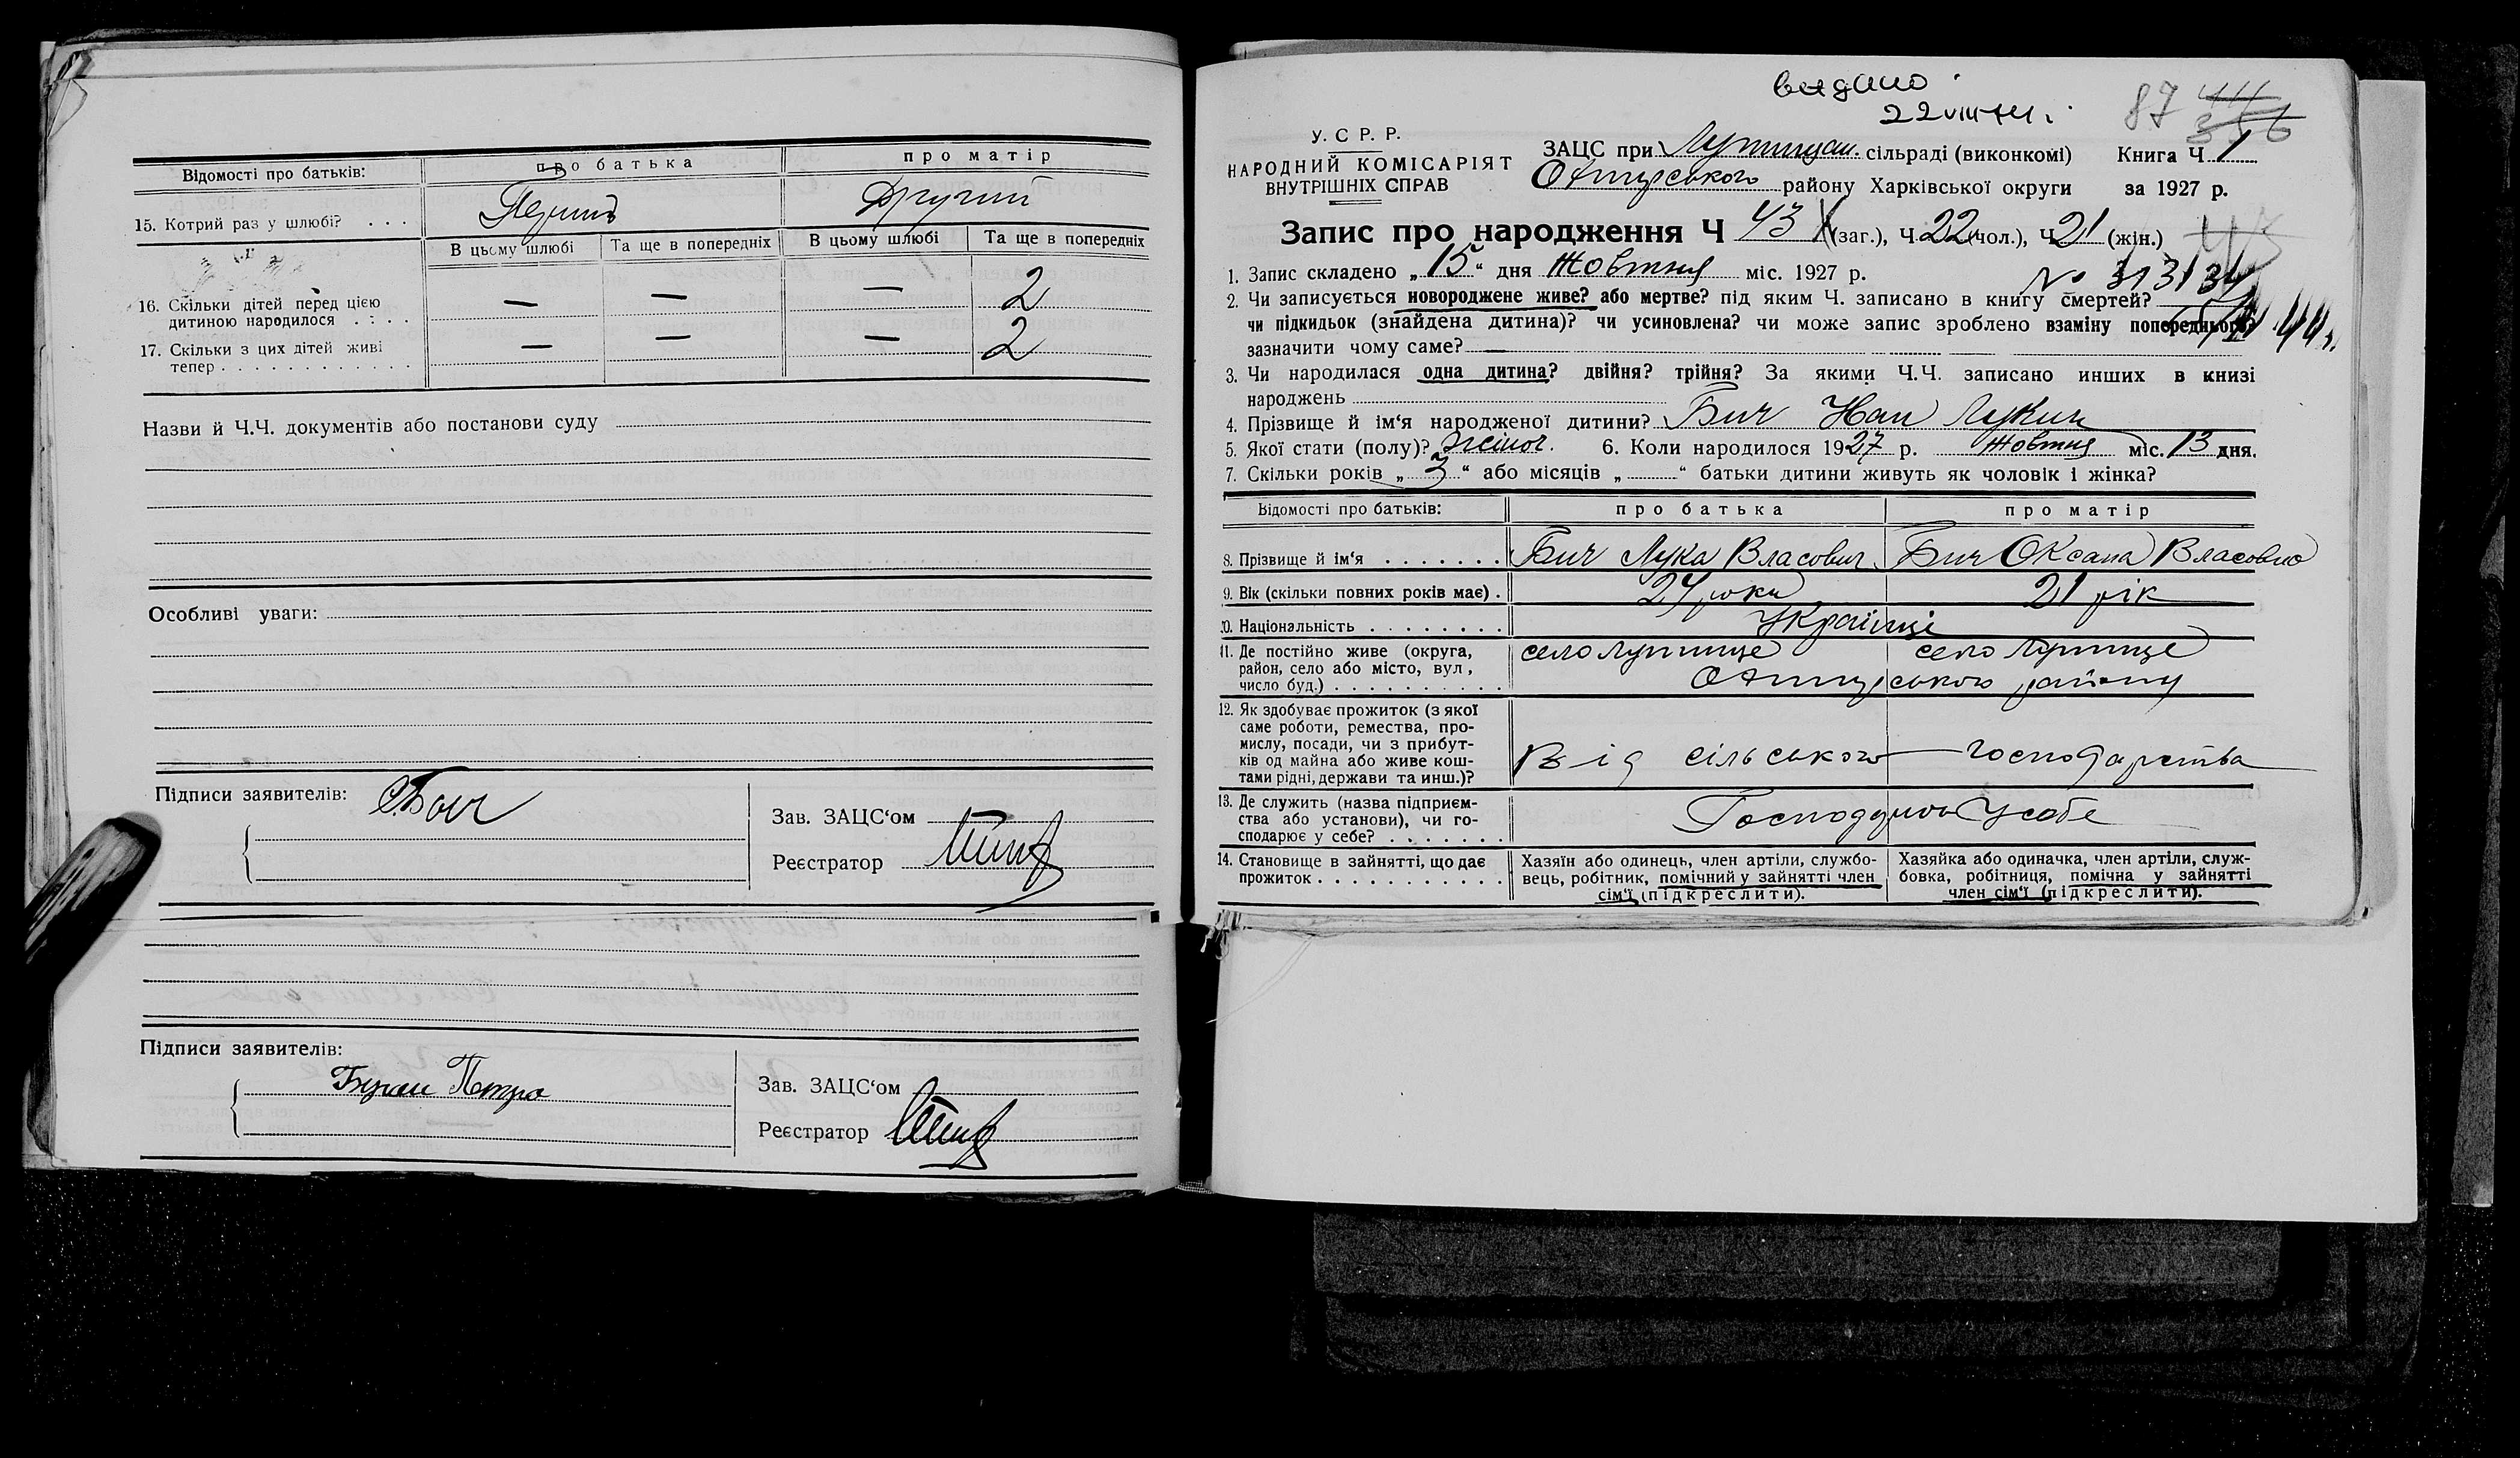 Відомості про батьків: про батька про матір
15. Котрий раз у шлюбі? . . . Другий
В цьому шлюбі Та ще в попередніх В цьому шлюбі Та ще в попередніх
16. Скільки дітей перед цією
дитиною народилося . . . . — — — 2
17. Скільки з цих дітей живі
тепер . . . . . . . . . . . . — — — 2
Назви й Ч.Ч. документів або постанови суду
Особливі уваги:
Підписи заявителів:
Зав. ЗАЦС‘ом
Реєстратор
Підписи заявителів:
Петро
Зав. ЗАЦС‘ом
Реєстратор
видано
87
У. С Р. Р.
НАРОДНИЙ КОМІСАРІЯТ
ВНУТРІШНІХ СПРАВ
ЗАЦС при сільраді (виконкомі) Книга Ч 1
району Харківської округи за 1927 р.
Запис про народження Ч 43 (заг.), Ч. 22 (чол.), Ч 21 (жін.)
1. Запис складено „ 15 “ дня Жовтня міс. 1927 р.
2. Чи записується новороджене живе? або мертве? під яким Ч. записано в книгу смертей?
чи підкидьок (знайдена дитина)? чи усиновлена? чи може запис зроблено взаміну попереднього?
зазначити чому саме? —
3. Чи народилася одна дитина? двійня? трійня? За якими Ч.Ч. записано инших в книзі
народжень
4. Прізвище й ім‘я народженої дитини? Бич
5. Якої стати (полу)? жіноч. 6. Коли народилося 1927 р. Жовтня міс. 13 дня.
7. Скільки років „ 3 “ або місяців „ “ батьки дитини живуть як чоловік і жінка?
Відомості про батьків: про батька про матір
8. Прізвище й ім‘я . . . . . . . Бич Лука Власович Бич Оксана Власовна
9. Вік (скільки повних років має) . 24 роки 21 рік
10. Національність . . . . . . . . Українці
11. Де постійно живе (округа,
район, село або місто, вул,
число буд.) . . . . . . . . . . село село району
12. Як здобуває прожиток (з якої
саме роботи, ремества, про-
мислу, посади, чи з прибут-
ків од майна або живе кош-
тами рідні, держави та инш.)? Від сільського господарства
13. Де служить (назва підприєм-
ства або установи), чи го-
сподарює у себе? . . . . . . . У себе
14. Становище в зайнятті, що дає
прожиток . . . . . . . . . . .
Хазяїн або одинець, член артіли, службо-
вець, робітник, помічний у зайнятті член
сім‘ї (підкреслити).
Хазяйка або одиначка, член артіли, служ-
бовка, робітниця, помічна у зайнятті
член сім‘ї (підкреслити).